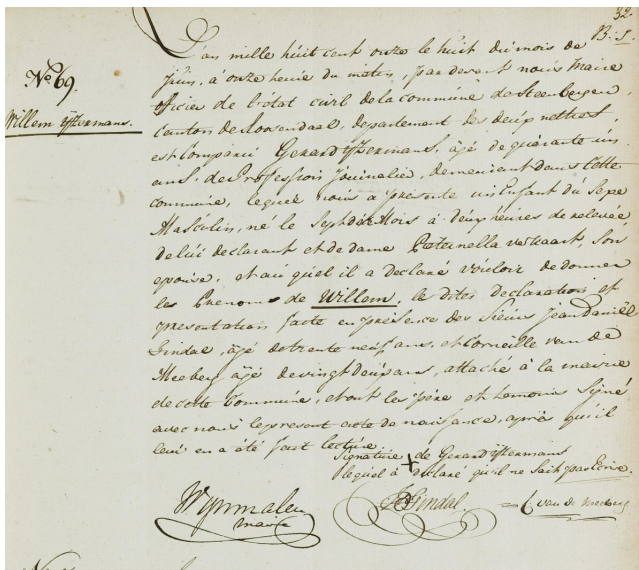 32.
B: 1.
L'an mille huit cent onze le huit du mois de
Juin, à onze heure du matin, par devant nous Maire
officier de l'état civil de la commune de Steenbergen,
Canton de Rosendaal, departement des deux nettes,
est Comparu Gerard ijzermans, âgé de quarante un
ans, de Profession Journalier, demeurant dans Cette
commune, lequel nous a présenté un Enfant du Sexe
Masculin, né le Sept du Mois à deux heures de relevée
de lui declarant et de dame Pieternella verhaart, Son
epouse, et au quel il a declaré vouloir de donner
les Prénoms de Willem. le dites Declaration et
presentation faite en présence des Sieurs Jean Daniël
Gindal, âgé de trente neuf ans, et Corneille van de
Meeberg âgé de vingt deux ans, attaché à la mairie
de cette Commune, et ont les père et temoins Signé
avec nous le present acte de naissance, après qu'il
leur en a été fait lecture.
Signature + de Gerard ijzermans
lequel à declaré qu'il ne Sait pas Ecrire.
No. 69.
Willem ijzermans.
Wijnmalen
maire
JD Gindal
C van de meeberg